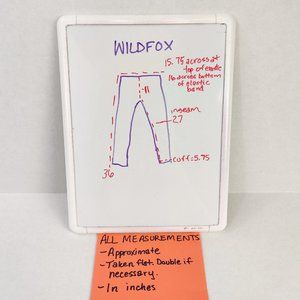 WILDFOX
15.75 across at
top of elastic
16 across bottom
of elastic
band
11
inseam
27
36
Cuff: 5.75
ALL MEASUREMENTS
- Approximate
- Taken flat. Double if
necessary.
- In inches